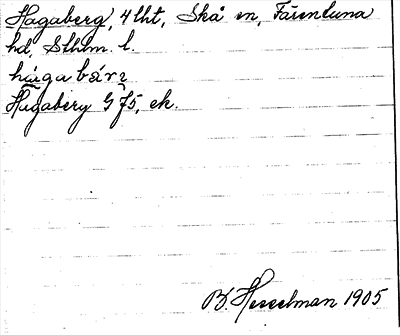 Hagaberg, 4 lht, Skå sn, Färentuna
hd, Sthlm. l.
hagabärj
Hagaberg G 75, ek.
B. Hesselman 1905